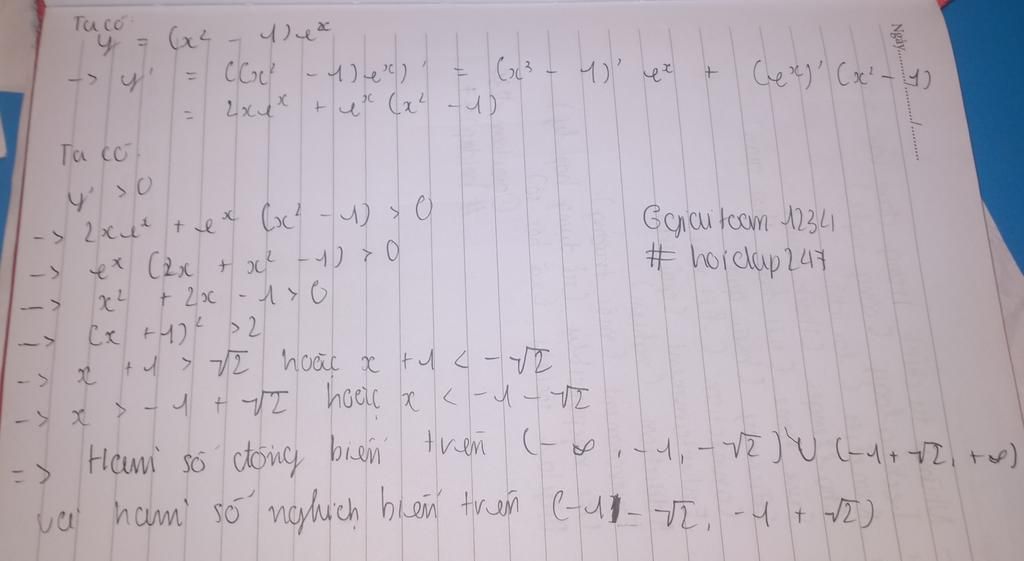 Ta có
y = (x² - 1)eˣ
-> y' = ((x² - 1)eˣ)' = (x² - 1)' eˣ + (eˣ)' (x² - 1)
= 2xeˣ + eˣ (x² - 1)
Ta có
y' > 0
-> 2xeˣ + eˣ (x² - 1) > 0
-> eˣ (2x + x² - 1) > 0
-> x² + 2x - 1 > 0
-> (x + 1)² > 2
-> x + 1 > √2 hoặc x + 1 < -√2
-> x > -1 + √2 hoặc x < -1 - √2
=> Hàm số đồng biến trên (-∞, -1, -√2) ∪ (-1 + √2, +∞)
và hàm số nghịch biến trên (-1 - √2, -1 + √2)
# hoidap247
Ngày